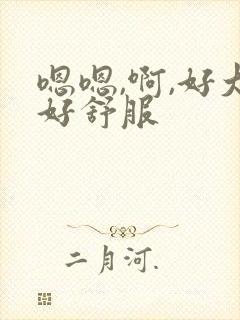 嗯嗯,啊,好大
好舒服
二月河.